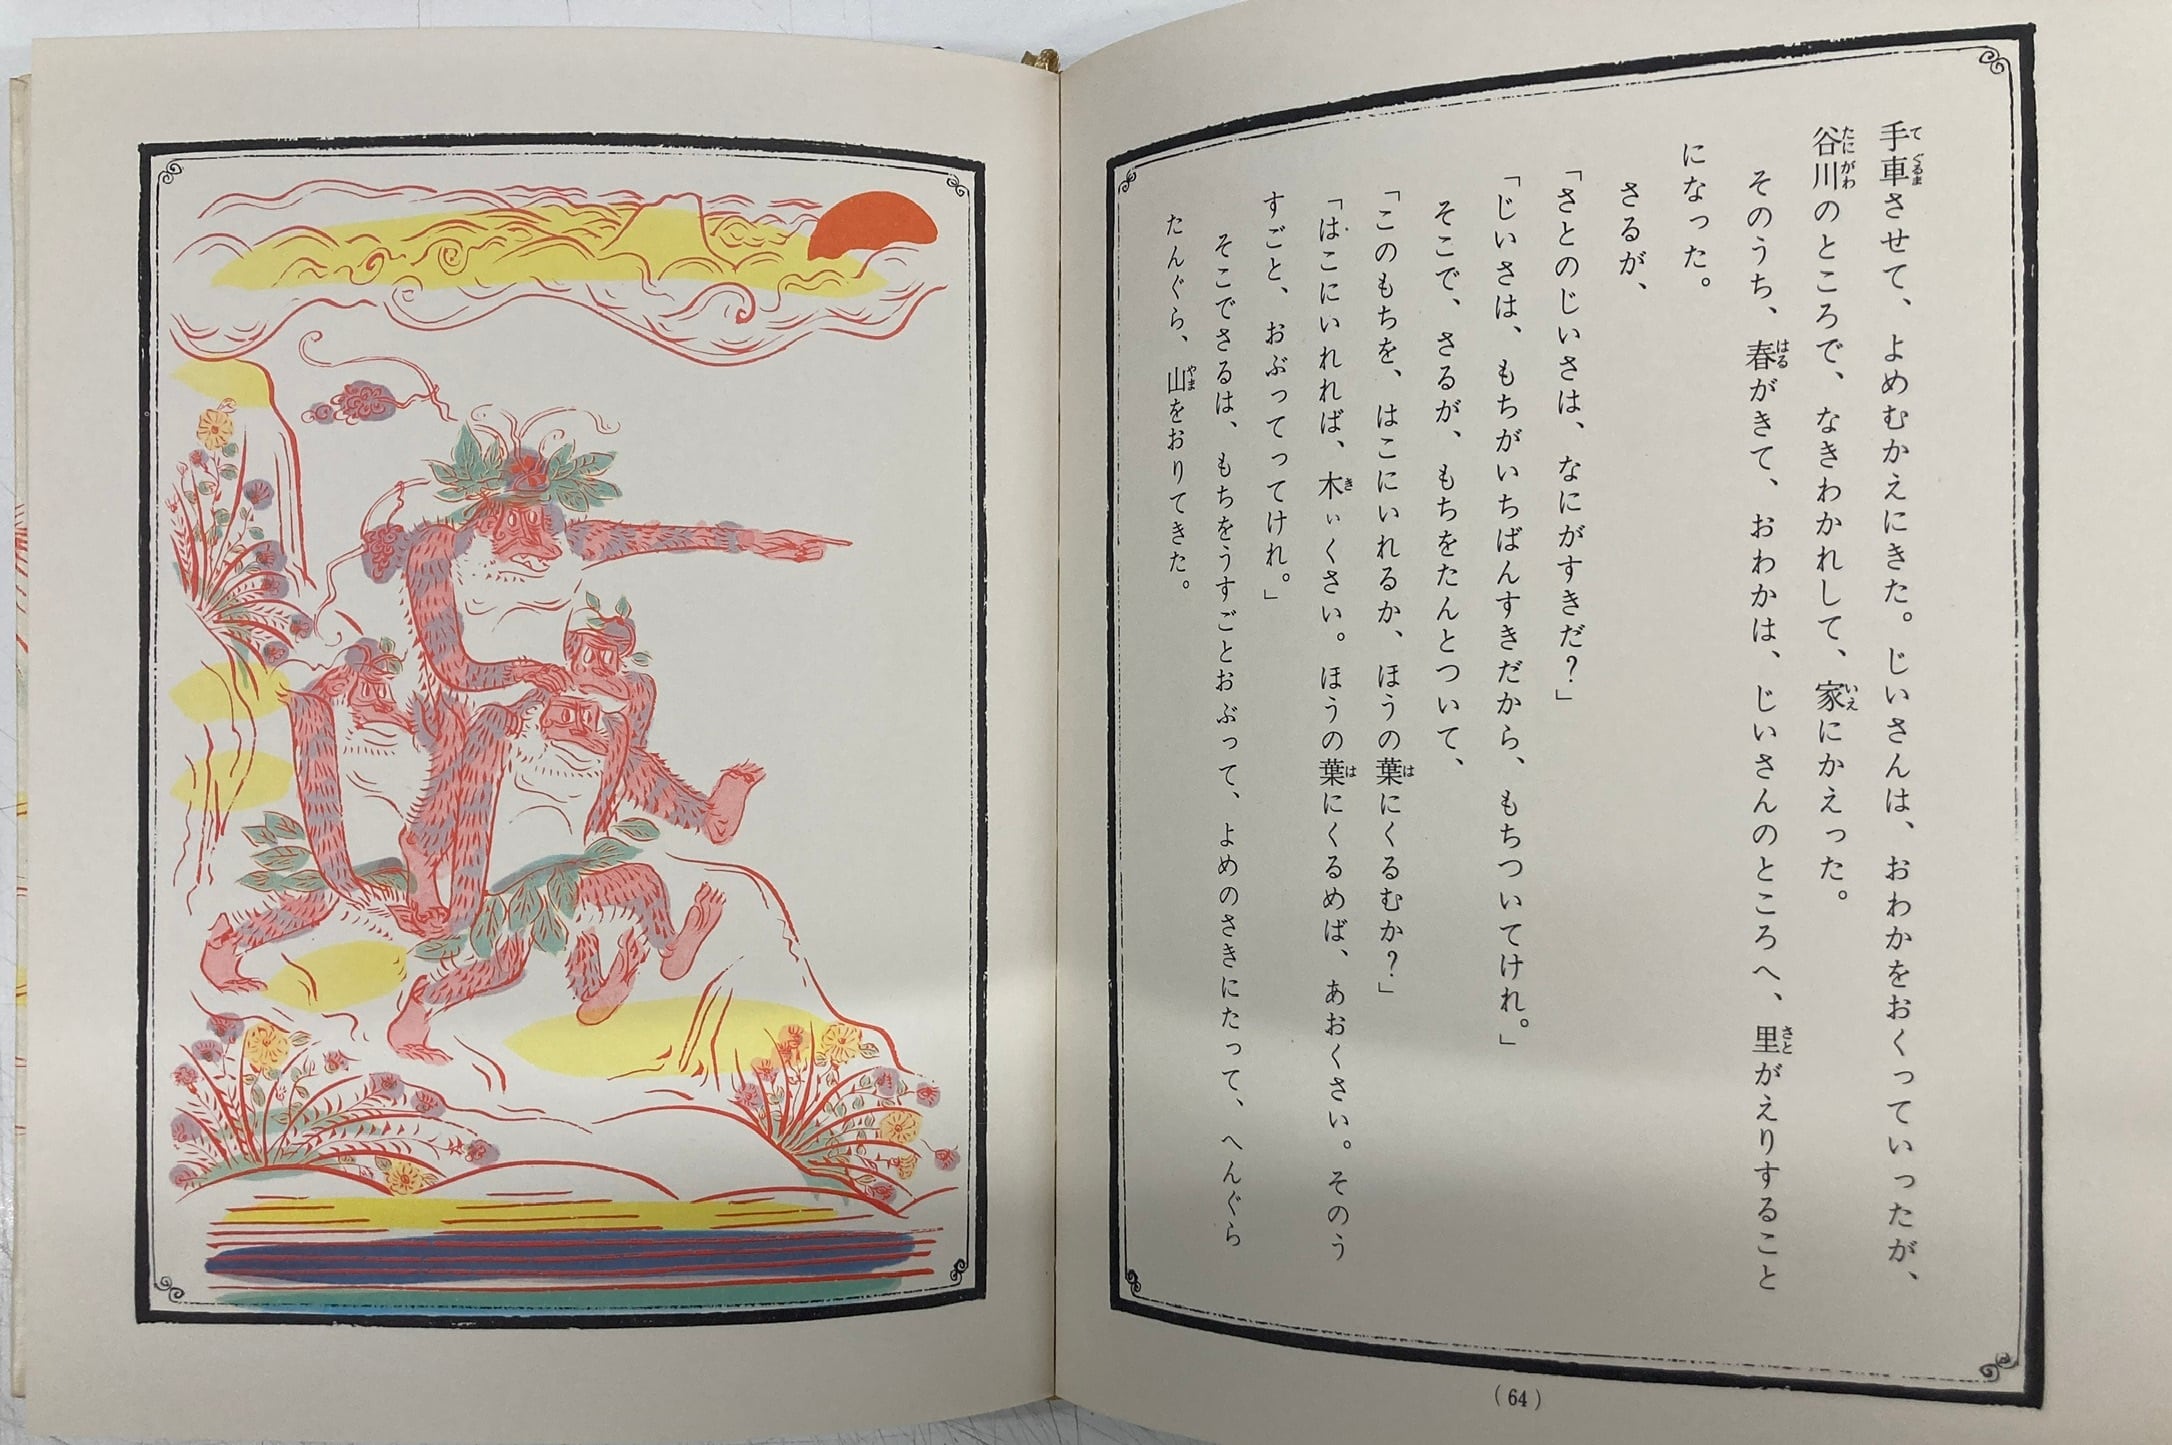 手車させて、よめむかえにきた。じいさんは、おわかをおくっていったが、
谷川のところで、なきわかれして、家にかえった。
そのうち、春がきて、おわかは、じいさんのところへ、里がえりすること
になった。
さるが、
「さとのじいさは、なにがすきだ?」
「じいさは、もちがいちばんすきだから、もちついてけれ。」
そこで、さるが、もちをたんとついて、
「このもちを、はこにいれるか、ほうの葉にくるむか?」
「はこにいれれば、木ぃくさい。ほうの葉にくるめば、あおくさい。そのう
すごと、おぶってってけれ。」
そこでさるは、もちをうすごとおぶって、よめのさきにたって、へんぐら
たんぐら、山をおりてきた。
(64)